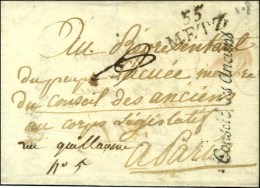 55
METZ
Au Représentant
du peuple Lacuée, membre
du Conseil des anciens
au corps Législatif
rue Guillaume
N° 5
A Paris
Conseil des Anciens